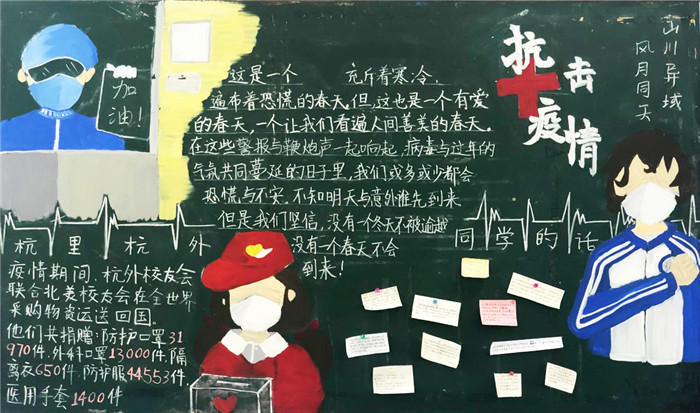 加
油！
这是一个 充斥着寒冷，
遍布着恐慌的春天，但，这也是一个有爱
的春天，一个让我们看遍人间善美的春天。
在这些警报与鞭炮声一起响起，病毒与过年的
气氛共同蔓延的日子里，我们或多或少都会
恐慌与不安，不知明天与意外谁先到来
但是我们坚信，没有一个冬天不被逾越
没有一个春天不会
到来！
抗击
疫情
山川异域
风月同天
杭里杭外
疫情期间，杭外校友会
联合北美校友会在全世界
采购物资运送回国。
他们共捐赠：防护口罩31
970件，外科口罩13000件，隔
离衣650件，防护服44553件，
医用手套1400件
同学的话